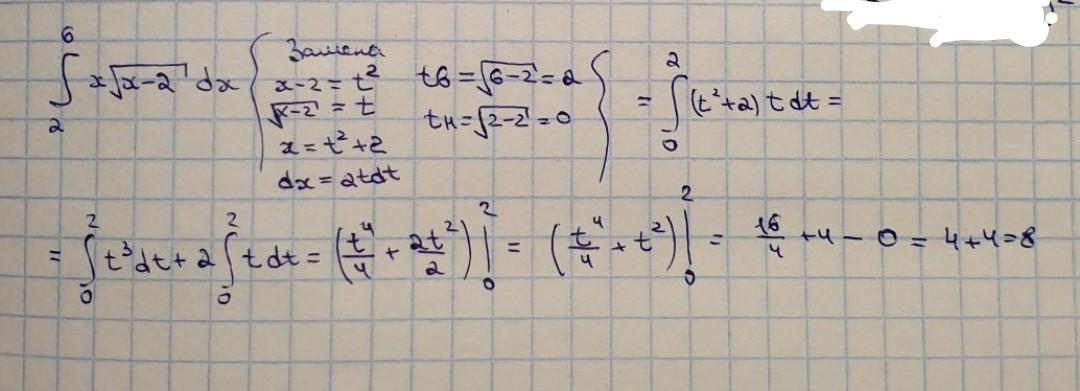 ∫₂⁶ x√(x-2) dx { Замена x-2 = t² √(x-2) = t x = t²+2 dx = 2tdt tв = √(6-2) = 2 tн = √(2-2) = 0 } = ∫₀² (t²+2) t dt =
= ∫₀² t³dt + 2 ∫₀² t dt = (t⁴/4 + 2t²/2) |₀² = (t⁴/4 + t²) |₀² = 16/4 + 4 - 0 = 4+4=8